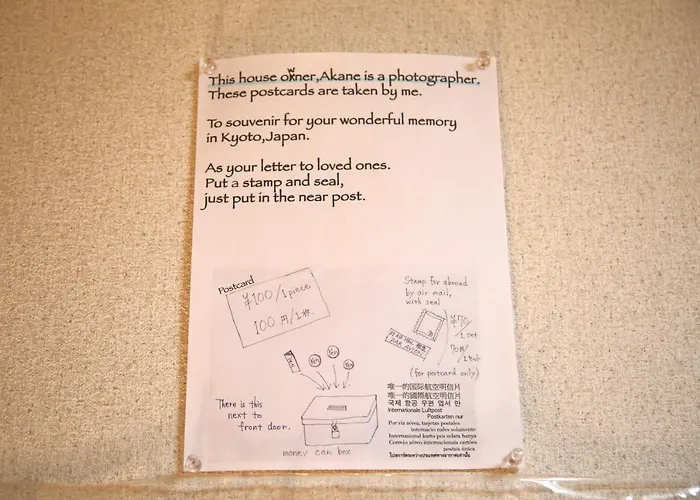 This house owner,Akane is a photographer.
These postcards are taken by me.
To souvenir for your wonderful memory
in Kyoto,Japan.
As your letter to loved ones.
Put a stamp and seal,
just put in the near post.
Postcard
¥100/1piece
100円/1枚.
Stamp for abroad
by air mail,
with seal
¥70/
1set
70円/
1set
PAR AVION
(for postcard only)
Yen
Yen
Yen
There is this
next to
front door.
money can box
唯一的国际航空明信片
唯一的國際航空明信片
국제 항공 우편 엽서 만
Internationale Luftpost
Postkarten nur
Por via aérea, tarjetas postales
internacio nales solamente
Internacional karto pos edara hanya
Correio aéreo internacionais cartões
postais única
ไปรษณีย์ระหว่างประเทศทางอากาศเท่านั้น